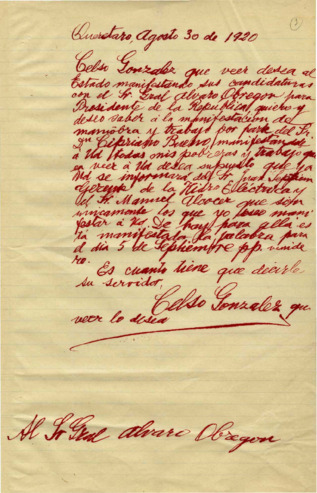 Queretaro, Agosto 30 de 1920
Celso Gonzalez que veer desea al
Estado manifestando sus candidaturas
con el Sr. Gral Alvaro Obregon para
Presidente de la Republica, quiero y
deseo saber a la manifestacion de
maniobra y trabajo por parte del Sr.
Cipriano Bueno, manifestandole
a Ud todas mis pobrezas y trabajo que
en veer a Ud desea su puesto que ya
Ud se informara del Sr. Juan
Gerente de la Hidro Electrica y
del Sr. Manuel que son
unicamente los que yo puse mani
festar á Ud. De hay para ella es
la manifiesta la palabra para
el dia 5 de Septiembre pp. venide
ro.
Es cuanto tiene que decirle
su servidor,
Celso Gonzalez que
veer lo desea
Al Sr Gral Alvaro Obregon